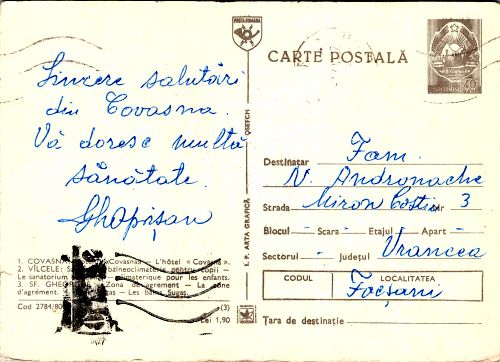 POSTA ROMANA
CARTE POSTALĂ
40
Sincere salutări
din Covasna.
Vă doresc multă
sănătate.
Destinatar Fam.
N. Andronache
Strada Miron Costin nr 3
Blocul - Scara - Etajul - Apart -
Sectorul - Județul Vrancea
CODUL LOCALITATEA
Focșani
Țara de destinație
I. P. ARTA GRAFICĂ
1. COVASNA Covasna» — L'hôtel « Covasna ».
2. VÎLCELE: balneoclimaterie pentru copii —
Le sanatorium climaterique pour les enfants.
3. SF. GHEORGHE Zona de agrement — La zone
d'agrément. Sugaș — Les bains Sugaș.
Cod 2784/80 (3)
Lei 1,90